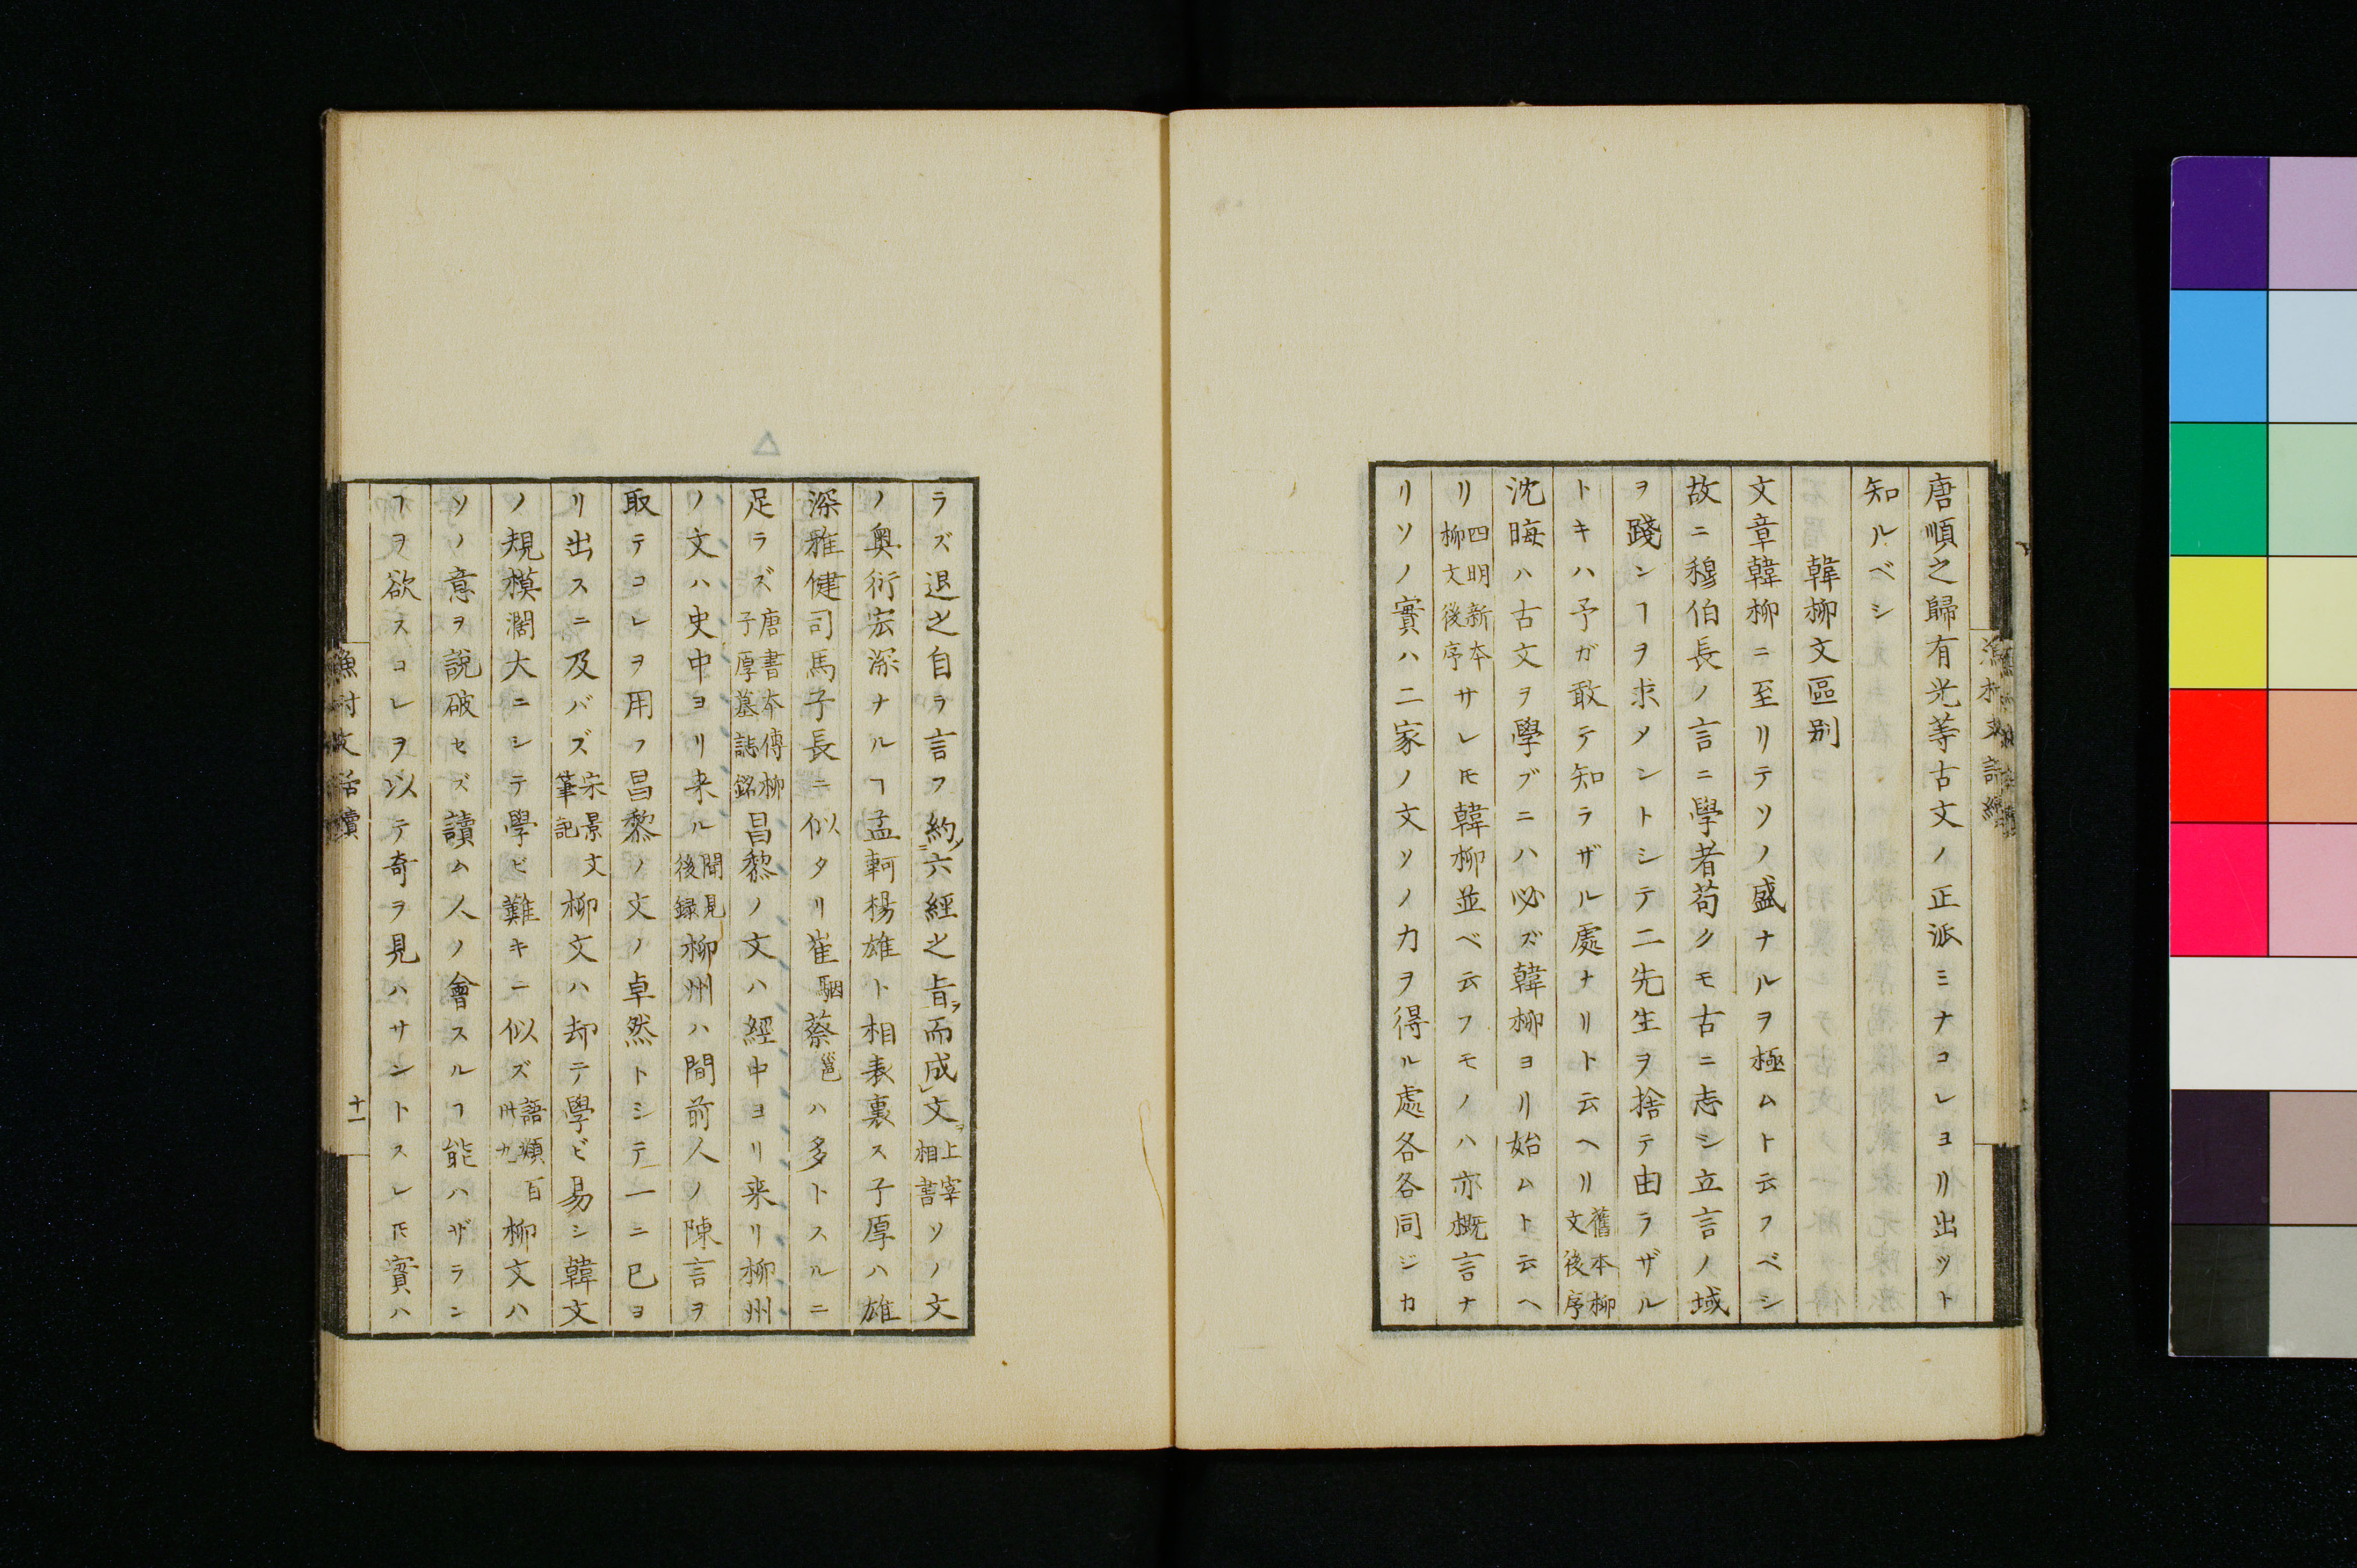 唐順之歸有光等古文ノ正派ミナコレヨリ出ツト
知ルベシ
韓柳文區別
文章韓柳ニ至リテソノ盛ナルヲ極ムト云フベシ
故ニ穆伯長ノ言ニ學者苟クモ古ニ志シ立言ノ域
ヲ踐ンヿヲ求メントシテ二先生ヲ捨テ由ラザル
トキハ予ガ敢テ知ラザル處ナリト云ヘリ舊本柳文後序
沈晦ハ古文ヲ學ブニハ必ズ韓柳ヨリ始ムト云ヘ
リ四明新本柳文後序サレ𪜈韓柳並ベ云フモノハ亦概言ナ
リソノ實ハ二家ノ文ソノ力ヲ得ル處各各同ジカ
ラズ退之自ラ言フ約ニ六經之旨ヲ而成レ文ヲ上宰相書ソノ文
ノ奥衍宏深ナルヿ孟軻楊雄ト相表裏ス子厚ハ雄
深雅健司馬子長ニ似タリ崔駰蔡邕ハ多トスルニ
足ラズ唐書本傳柳子厚墓誌銘昌黎ノ文ハ經中ヨリ来リ柳州
ノ文ハ史中ヨリ来ル聞見後録柳州ハ間前人ノ陳言ヲ
取テコレヲ用フ昌黎ノ文ノ卓然トシテ一ニ已ヨ
リ出スニ及バズ宋景文筆記柳文ハ却テ學ビ易シ韓文
ノ規模濶大ニシテ學ビ難キニ似ズ語類百卅九柳文ハ
ソノ意ヲ説破セズ讀ム人ノ會スルヿ能ハザランニ
ヿヲ欲スコレヲ以テ奇ヲ見ハサントスレ𪜈實ハ
漁村文話續
十一